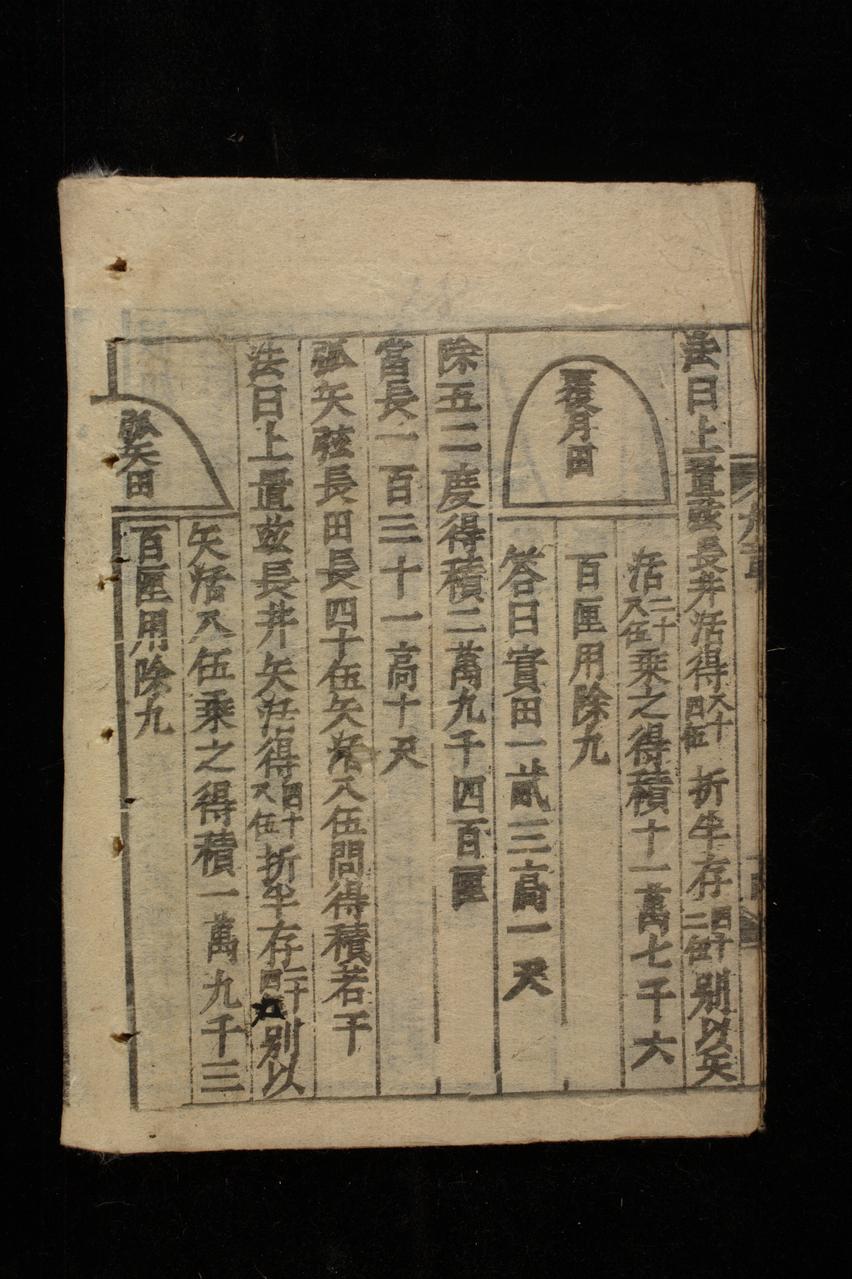 法曰上置弦長并活得六十四伍折半存四十二伍別以矢
活二十八伍乘之得積十一萬七千六
百厘用除九
覆月田
答曰實田一貳三高一尺
除五二度得積二萬九千四百厘
當長一百三十一高十尺
弧矢弦長田長四十伍矢活八伍問得積若干
法曰上置弦長并矢活得四十八伍折半存二十四九別以
矢活八伍乘之得積一萬九千三
百厘用除九
弧矢田